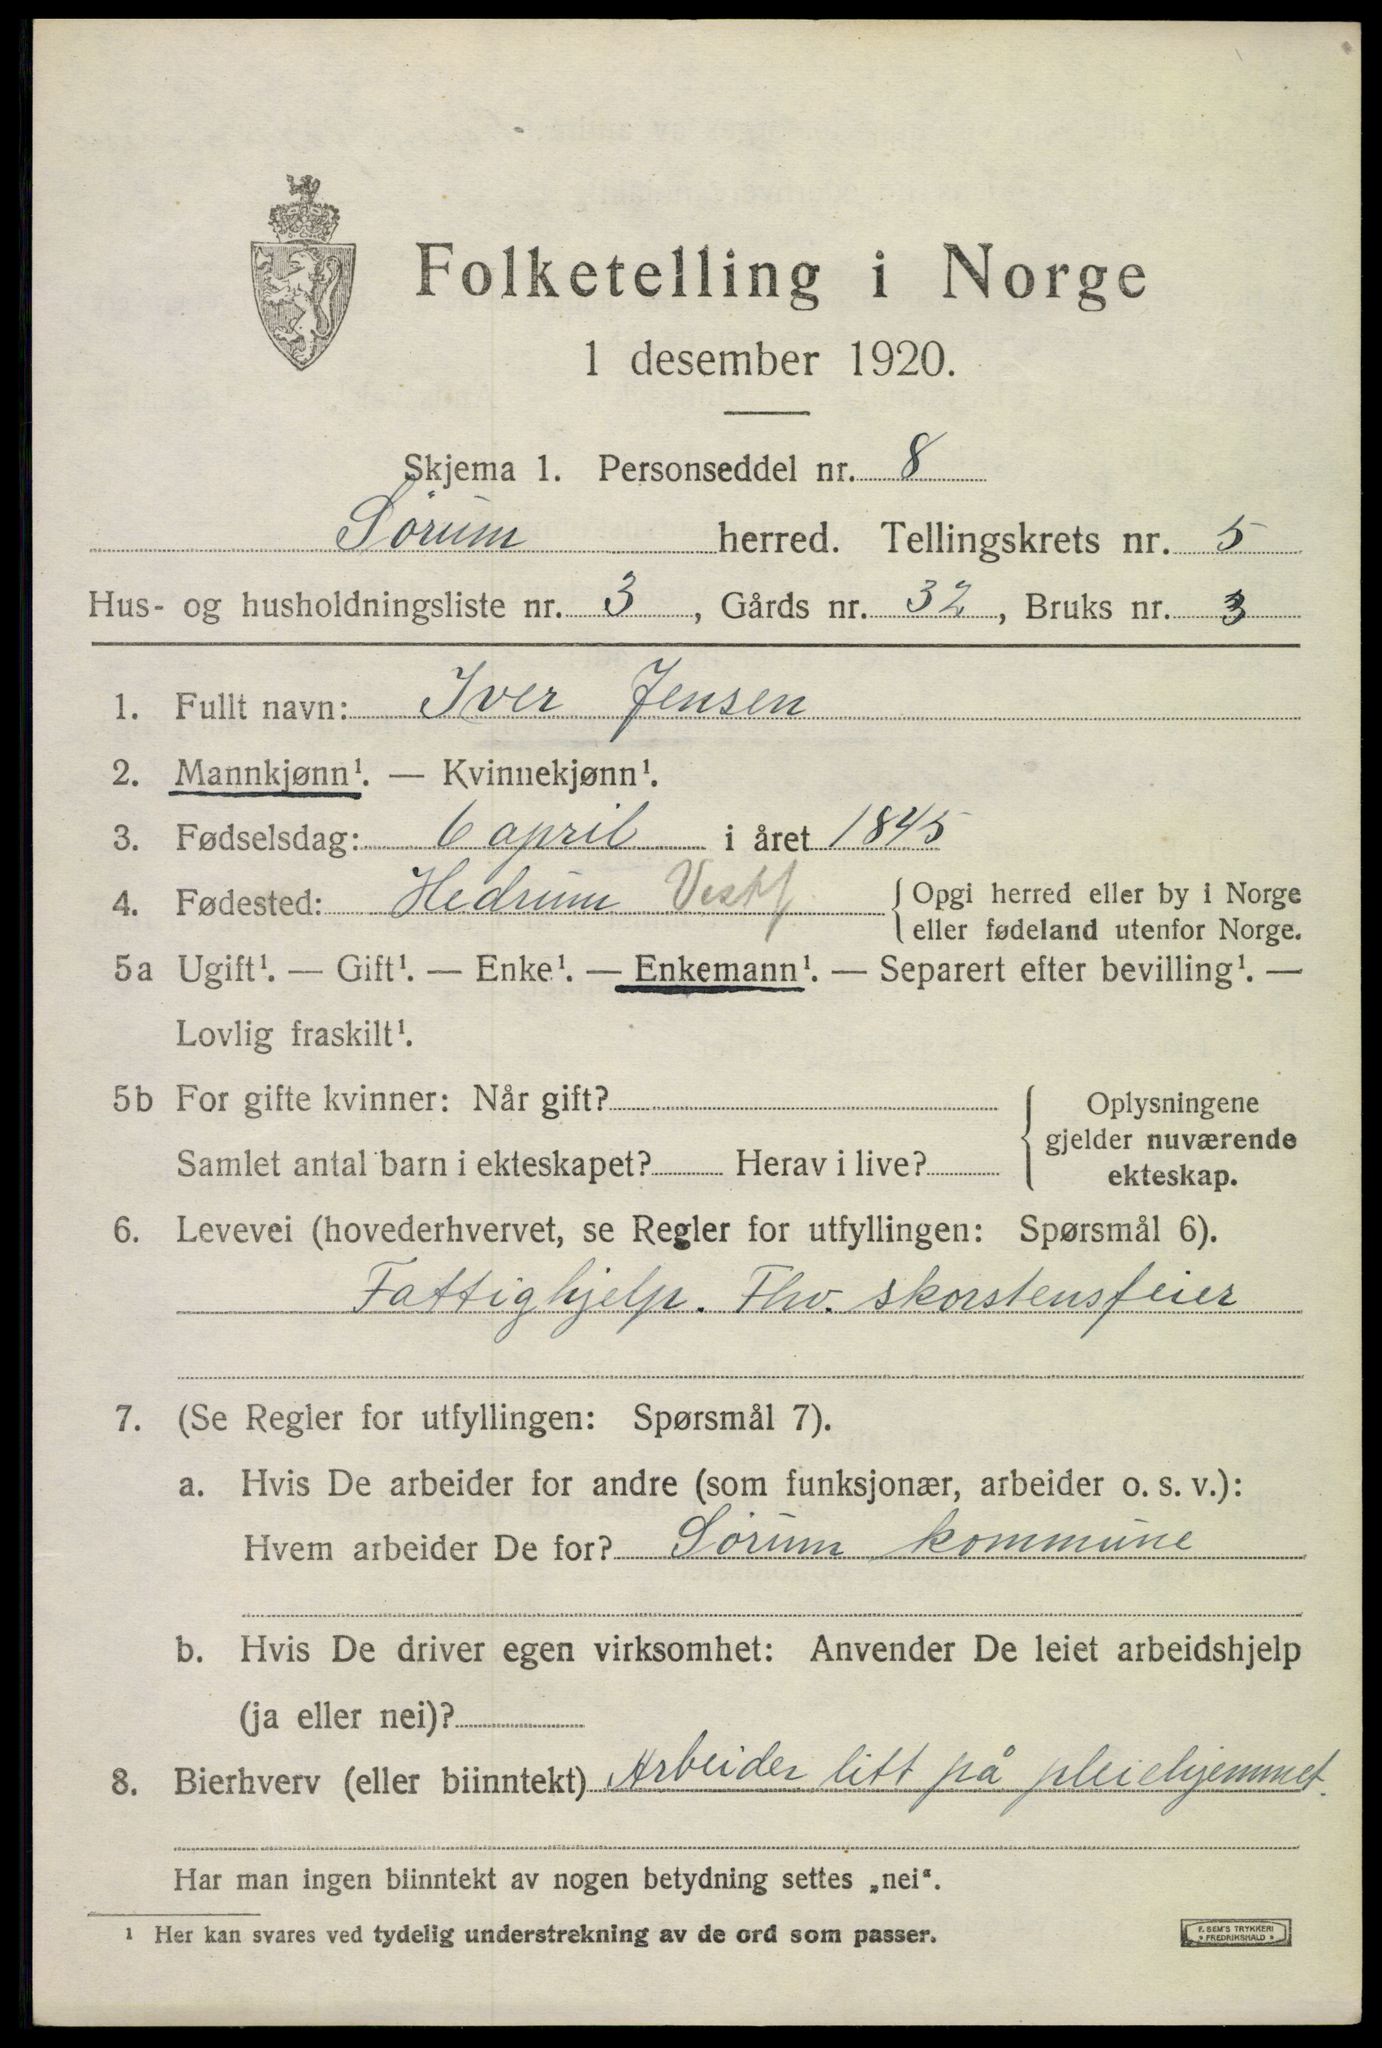 Folketelling i Norge
1 desember 1920.
Skjema 1. Personseddel nr. 8
Sørum herred. Tellingskrets nr. 5
Hus- og husholdningsliste nr. 3, Gårds nr. 32, Bruks nr. 3
1. Fullt navn: Iver Jensen
2. Mannkjønn¹. — Kvinnekjønn¹.
3. Fødselsdag: 6 april i året 1845
4. Fødested: Hedrum Vestf { Opgi herred eller by i Norge
eller fødeland utenfor Norge.
5a Ugift¹. — Gift¹. — Enke¹. — Enkemann¹. — Separert efter bevilling¹. —
Lovlig fraskilt¹.
5b For gifte kvinner: Når gift?
Samlet antal barn i ekteskapet? Herav i live?
{ Oplysningene
gjelder nuværende
ekteskap.
6. Levevei (hovederhvervet, se Regler for utfyllingen: Spørsmål 6).
Fattighjelp. Fhv. skorstensfeier
7. (Se Regler for utfyllingen: Spørsmål 7).
a. Hvis De arbeider for andre (som funksjonær, arbeider o. s. v.):
Hvem arbeider De for? Sørum kommune
b. Hvis De driver egen virksomhet: Anvender De leiet arbeidshjelp
(ja eller nei)?
8. Bierhverv (eller biinntekt) Arbeider litt på pleiehjemmet.
Har man ingen biinntekt av nogen betydning settes „nei“.
¹ Her kan svares ved tydelig understrekning av de ord som passer.
F. SEM'S TRYKKERI
* FREDRIKSHALD *